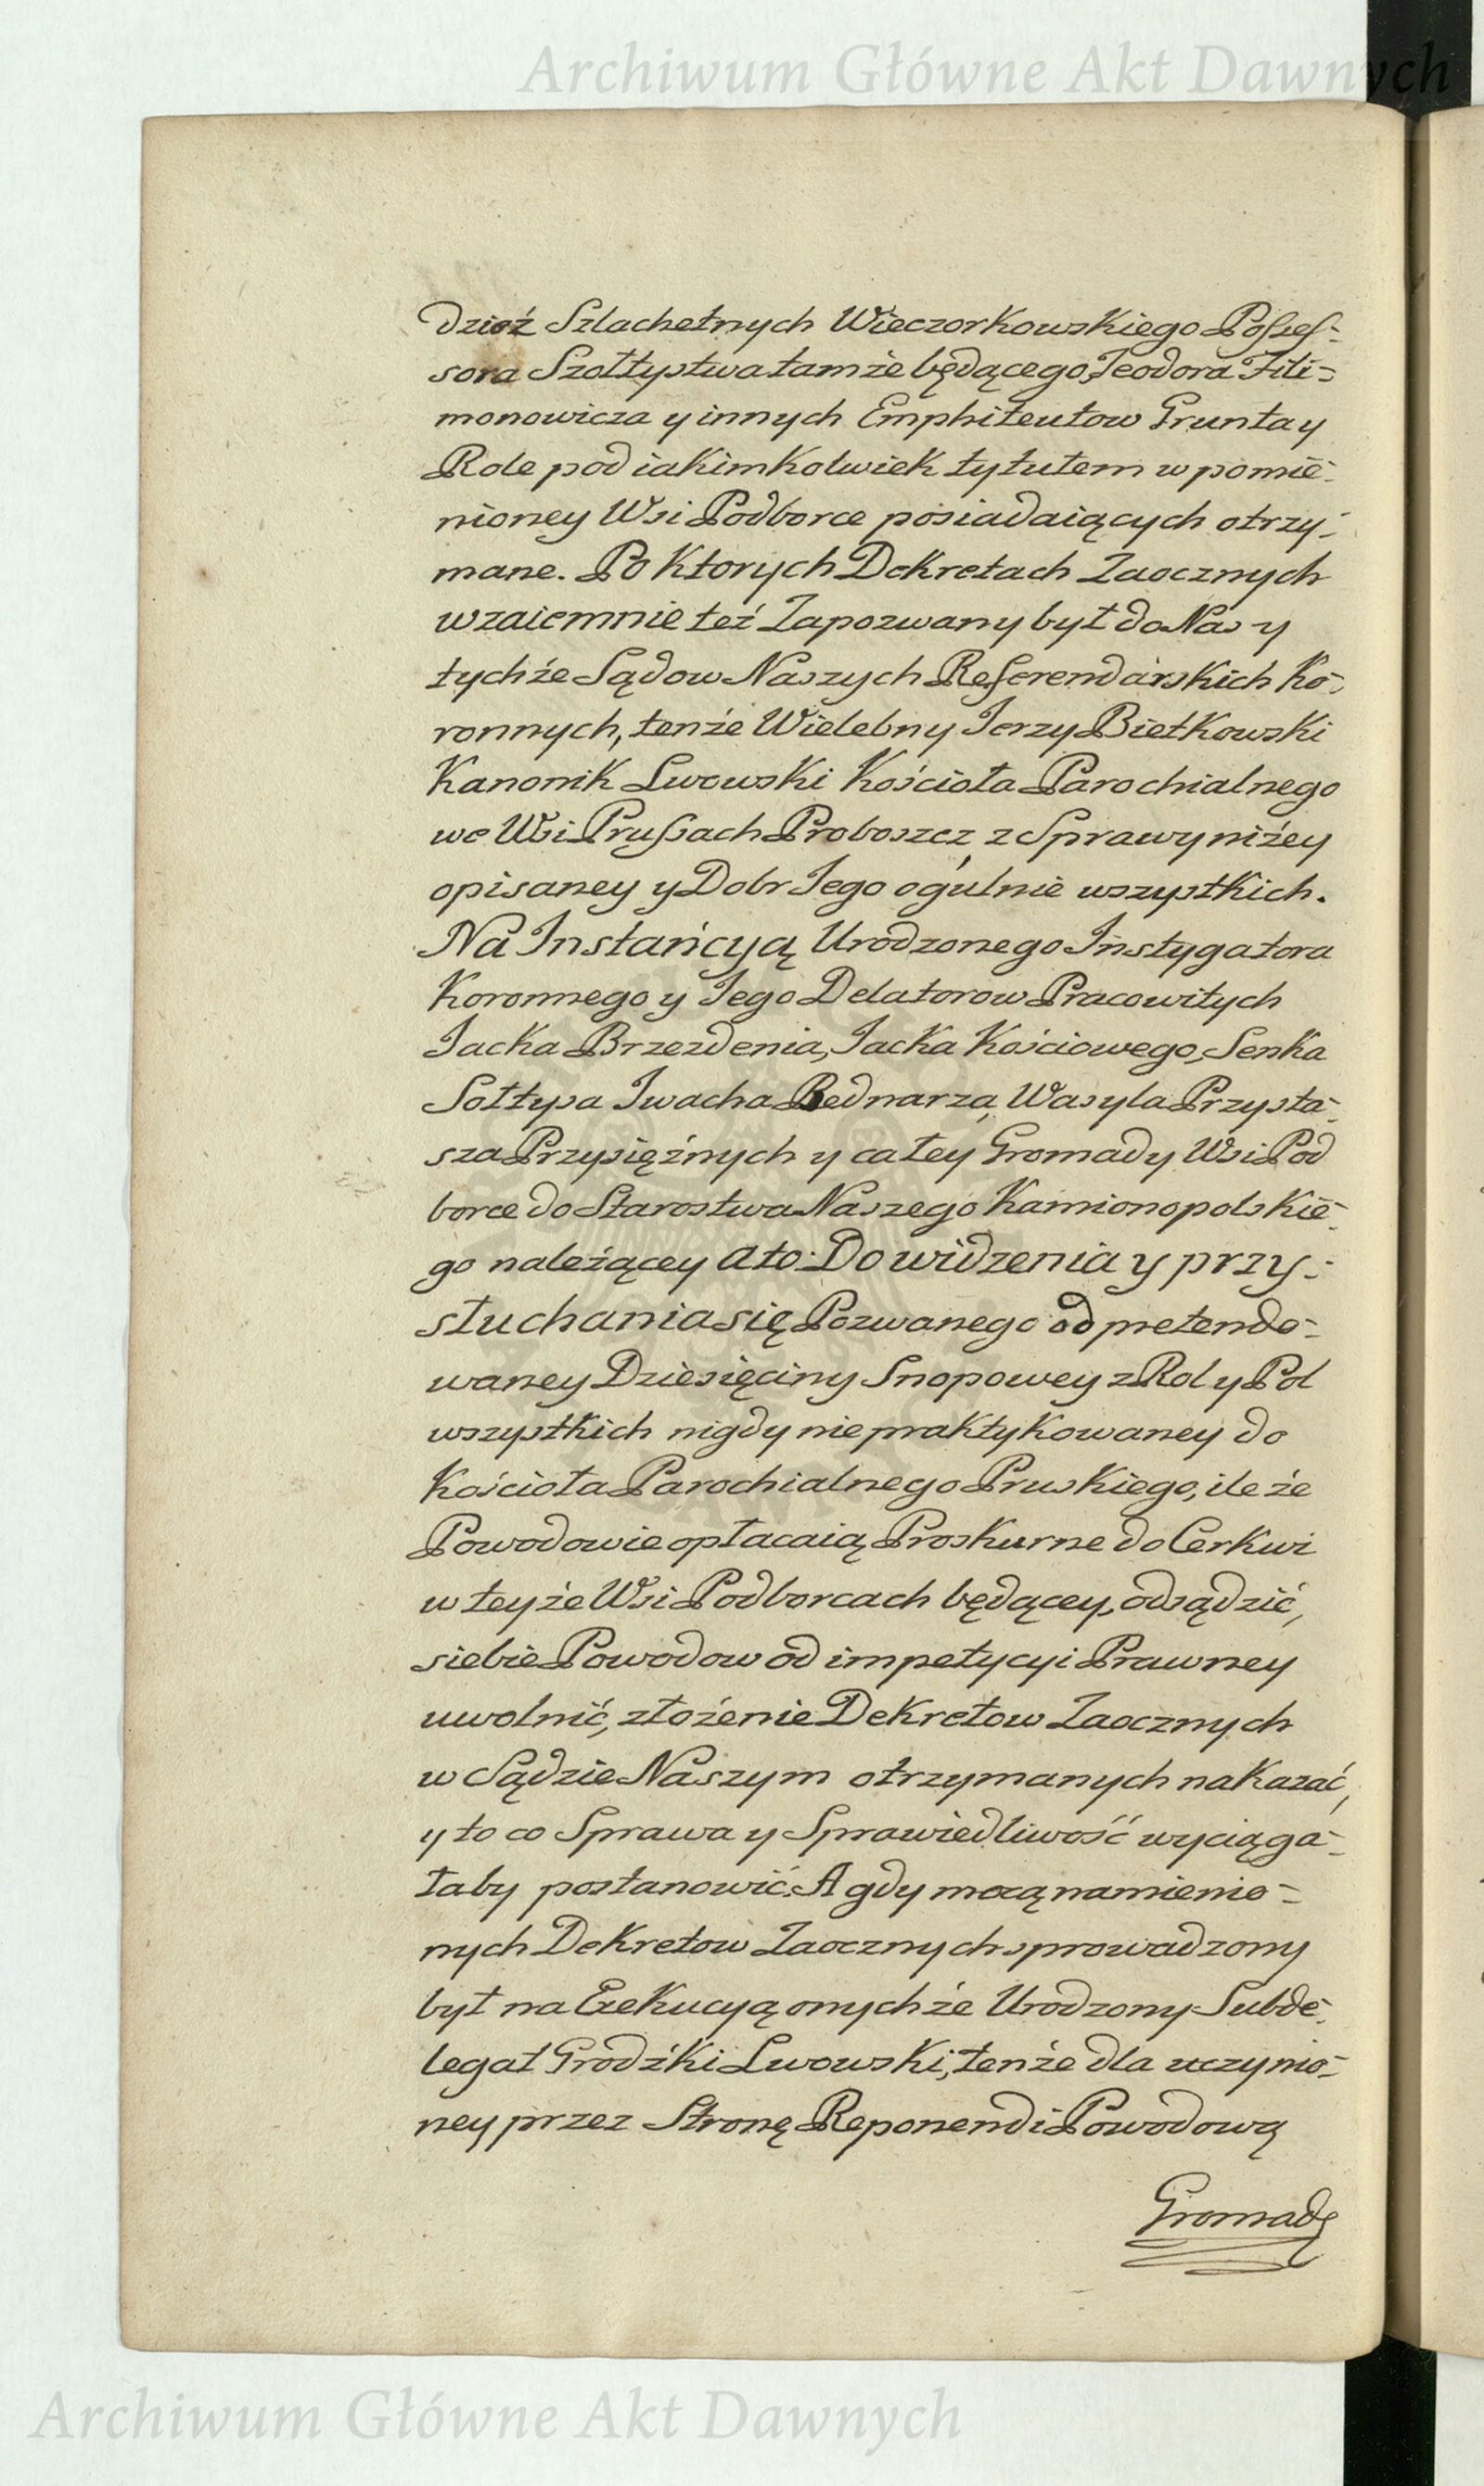 Archiwum Główne Akt Dawnych
dzież Szlachetnych Wieczorkowskiego Possef-
sora Szołtystwa tamże będącego, Teodora Fili-
monowicza y innych Emphiteutow Grunta y
Role pod iakimkolwiek tytułem w pomie-
nioney Wsi Podborce posiadaiących otrzy-
mane. Po Ktorych Dekretach Zaocznych
wzaiemnie też Zapozwany był do Nas y
tychże Sądow Naszych Referendarskich Ko-
ronnych, tenże Wielebny Jerzy Biełkowski
Kanonik Lwowski Kościoła Parochialnego
we Wsi Prussach Proboszcz, z Sprawy niżey
opisaney y Dobr Jego ogulnie wszystkich.
Na Instańcyą Urodzonego Instygatora
Koronnego y Jego Delatorow Pracowitych
Jacka Brzezdenia, Jacka Kościowego, Senka
Sołtysa Iwacha Bednarza, Wasyla Przysta-
sza Przysiężnych y całey Gromady Wsi Pod
borce do Starostwa Naszego Kamionopolskie-
go należącey a to: Do widzenia y przy-
słuchania się Pozwanego od pretendo-
waney Dziesięciny Snopowey z Rol y Pol
wszystkich nigdy nie praktykowaney do
Kościoła Parochialnego Pruskiego, ile że
Powodowie opłacaią Proskurne do Cerkwi
w teyże Wsi Podborcach będącey, odsądzić,
siebie Powodow od impetycyi Prawney
uwolnić, złożenie Dekretow Zaocznych
w Sądzie Naszym otrzymanych nakazać,
y to co Sprawa y Sprawiedliwość wyciąga-
łaby postanowić. A gdy mocą namienio-
nych Dekretow Zaocznych sprowadzony
był na Exekucyą onychże Urodzony Subde-
legat Grodzki Lwowski, tenże dla uczynio-
ney przez Stronę Reponendi Powodową
Gromadę
Archiwum Główne Akt Dawnych